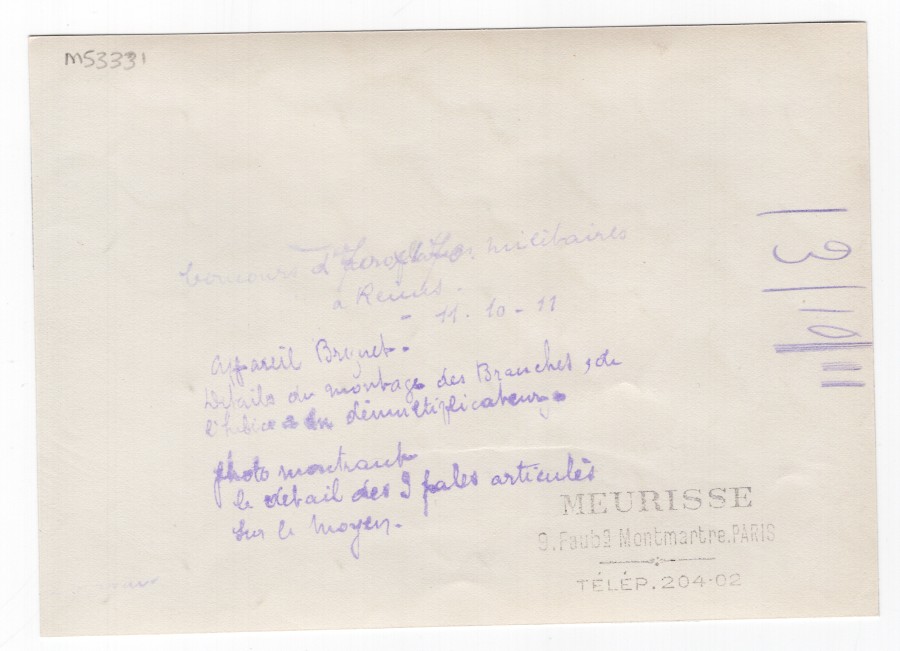 M53331
Concours d'Aeroplanes militaires
à Reims.
- 11-10-11
Appareil Breguet.
Details du montage des Branches, de
l'helice démultiplicateur.
photo montrant
le détail des 3 pales articulès
sur le moyeu.
MEURISSE
9. Faubg Montmartre. PARIS
TÉLÉP. 204-02